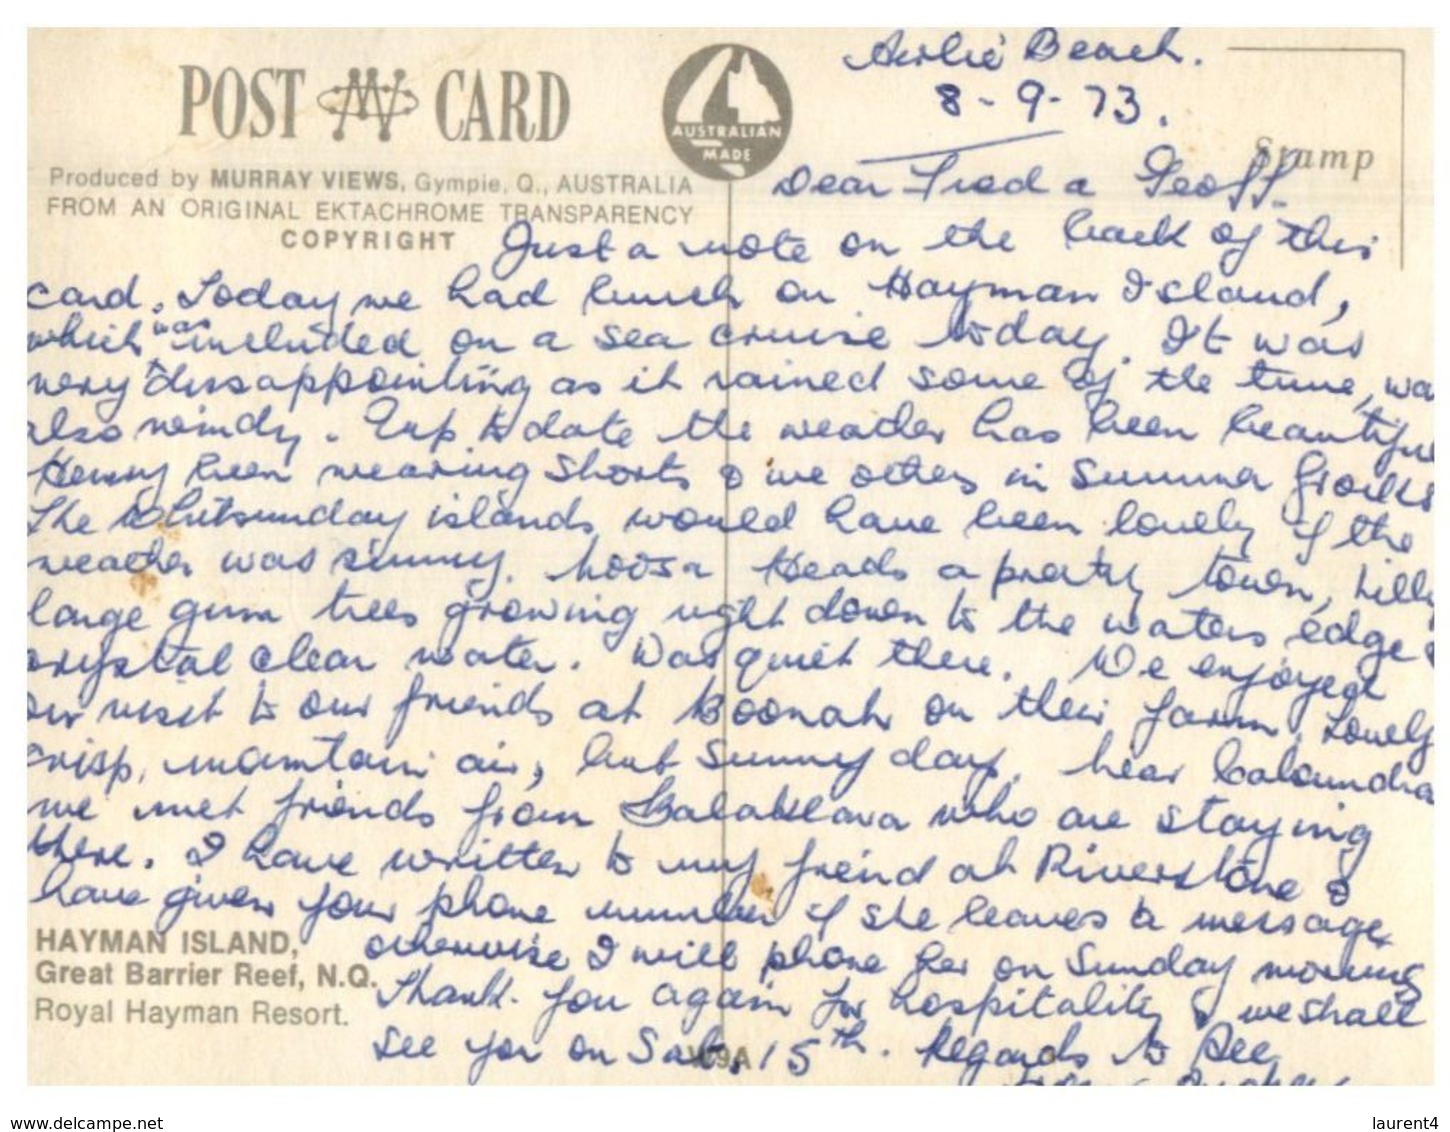 Airlie Beach.
8-9-73.
POST CARD
AUSTRALIAN
MADE
Stamp
Produced by MURRAY VIEWS, Gympie, Q., AUSTRALIA
FROM AN ORIGINAL EKTACHROME TRANSPARENCY
COPYRIGHT
Dear Freda & Geoff.
Just a note on the back of this
card. Today we had lunch on Hayman Island,
which was included on a sea cruise today. It was
very disappointing as it rained some of the time, wa
also windy. Up to date the weather has been beautifu
been wearing shorts & we others in summer frocks
The Whitsunday islands would have been lovely if the
weather was sunny. Noosa Heads a pretty town, hilly
large gum trees growing right down to the waters edge &
crystal clear water. Was quiet there. We enjoyed
our visit to our friends at Boonah on their farm. Lovely
crisp, mountain air, but sunny day. Near Caloundra
we met friends from Balaklava who are staying
there. I have written to my friend at Riverstone &
have given your phone number if she leaves a message,
otherwise I will phone her on Sunday morning
Thank you again for hospitality & we shall
see you on Sat. 15th. Regards to Dee,
HAYMAN ISLAND,
Great Barrier Reef, N.Q.
Royal Hayman Resort.
www.delcampe.net
laurent4